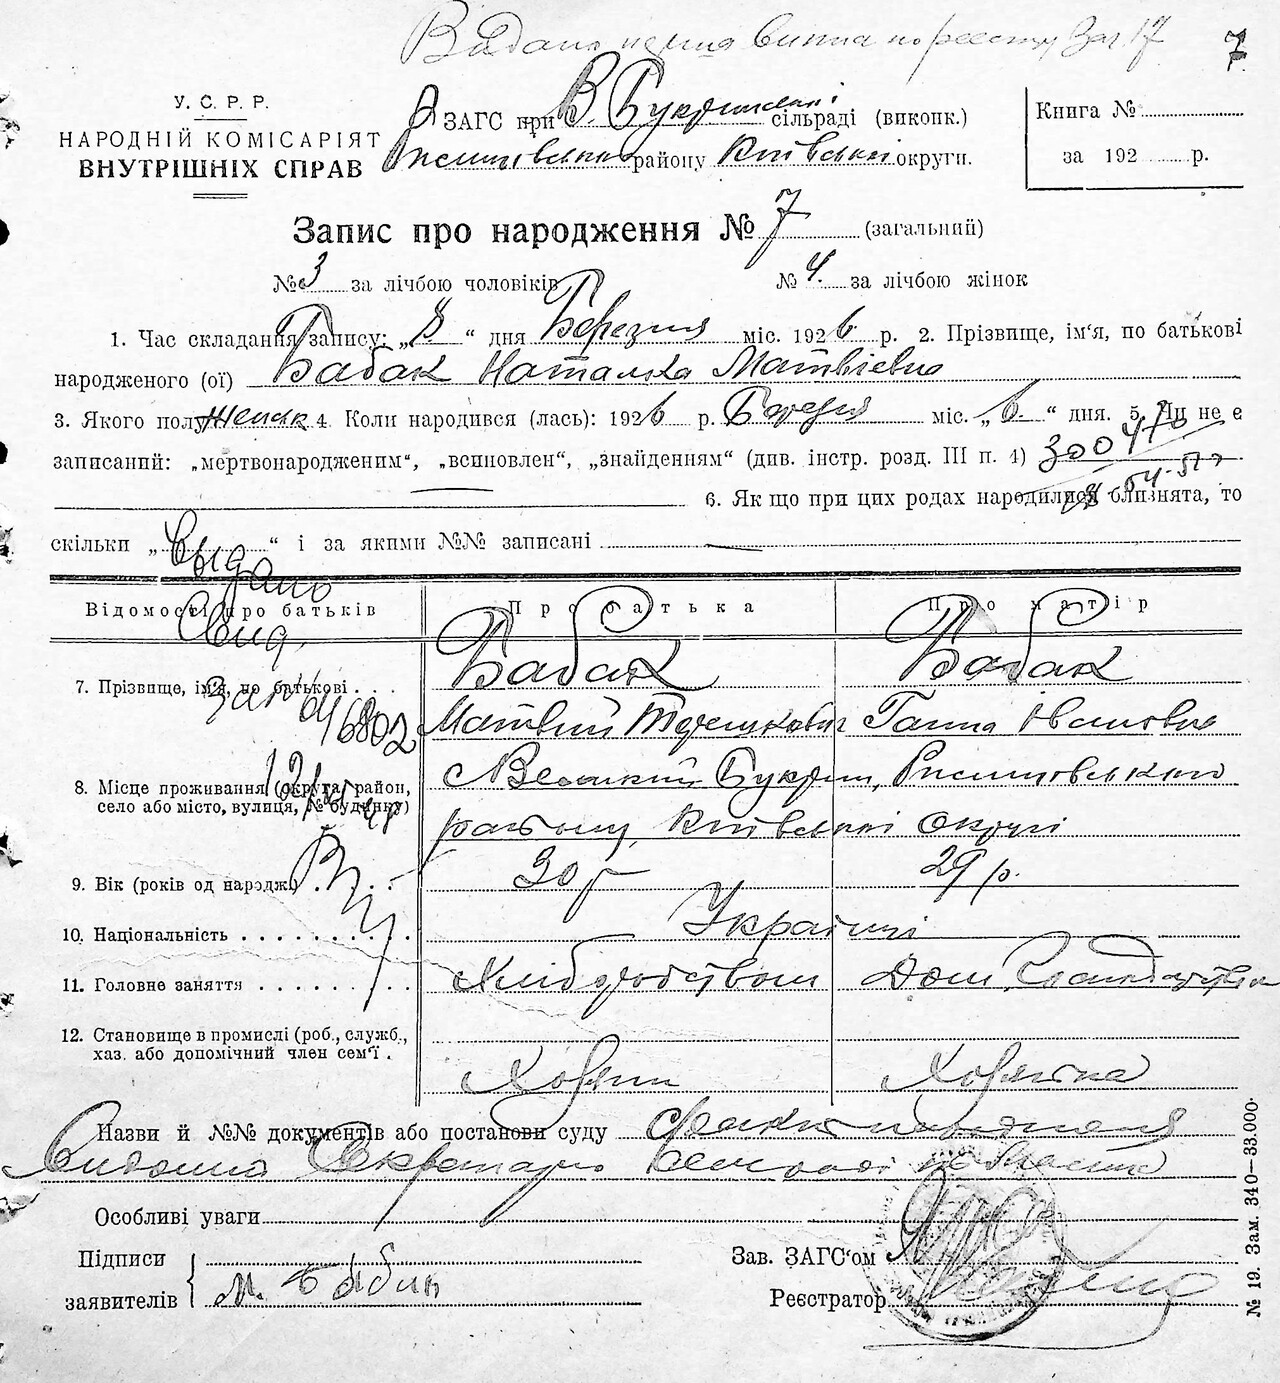 Видано перша випка по реєстру Заг. 17
7
У. С. Р. Р.
НАРОДНІЙ КОМІСАРІЯТ
ВНУТРІШНІХ СПРАВ
ЗАГС при В. Букринській сільраді (виконк.)
Ржищівського району Київської округи.
Книга №
за 192 р.
Запис про народження № 7 (загальний)
№ 3 за лічбою чоловіків № 4. за лічбою жінок
1. Час складання запису: „ 8 “ дня Березня міс. 1926 р. 2. Прізвище, ім‘я, по батькові
народженого (ої) Бабак Наталка Матвієвна
3. Якого полу 4. Коли народився (лась): 1926 р. Березня міс. „ 6. “ дня. 5. Чи не є
записаний: „мертвонародженим“, „всиновлен“, „знайденням“ (див. інстр. розд. III п. 4)
6. Як що при цих родах народилися близнята, то
скільки „ “ і за якими №№ записані
Выдано
Свид.
Відомості про батьків Про батька Про матір
7. Прізвище, ім‘я, по батькові . . . Бабак Бабак
Матвій Ганна Івановна
046802
8. Місце проживання (округа, район, Великий Букрин, Ржищовського
село або місто, вулиця, № будинку) району Київської округі
9. Вік (років од народж.) . . . 30 р 29 р.
10. Національність . . . . . . . . . Українці
11. Головне заняття . . . . . . . . Хліборобством Дом. Господарством
12. Становище в промислі (роб., служб.,
хаз. або допомічний член сем‘ї . Хозяин Хозяйка
Назви й №№ документів або постанови суду
Особливі уваги
Підписи
заявителів М. Бабак
Зав. ЗАГС‘ом
Реєстратор
№ 19. Зам. 340—33.000.